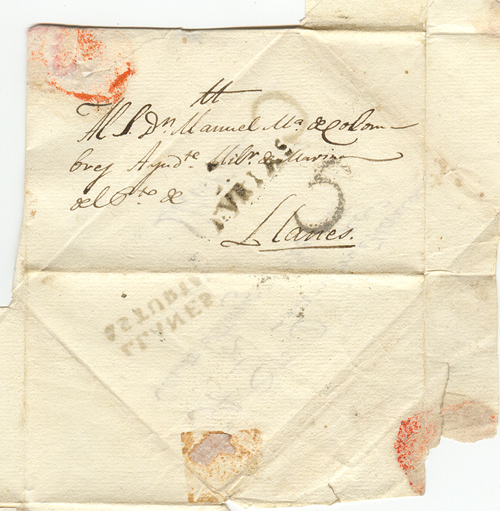 Al S. Dn. Manuel Ma. de Colom-
brez Ayudte. Milr. de Marina
del Pto. de
Llanes.
5
ASTURIAS
LLANES